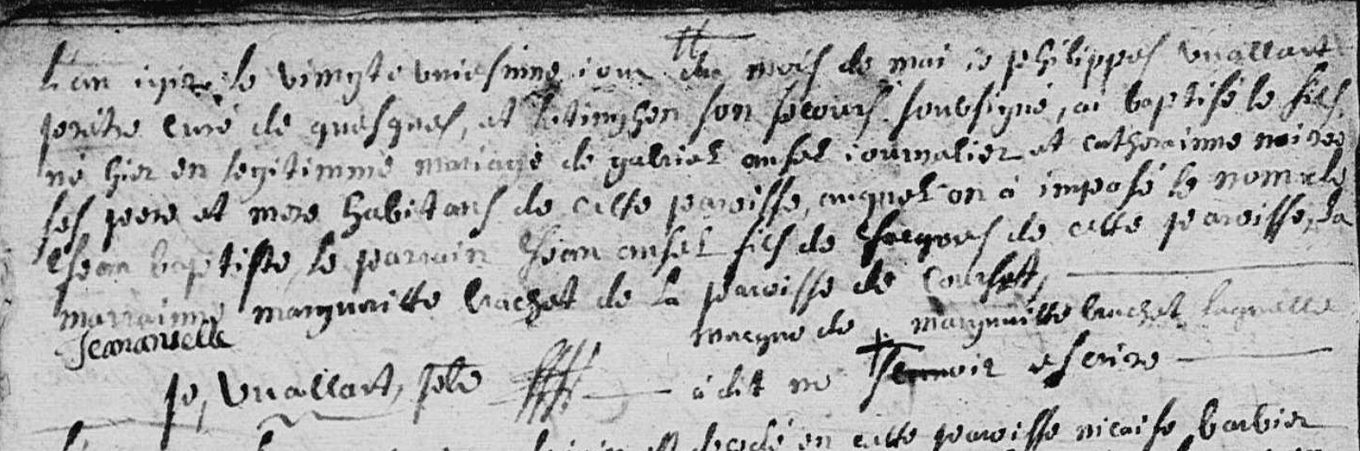 l'an le vingte uniesime iour du mois de mai ie philippes vuallart
prêtre curé de quesques, et lottinghen son secours soubsigné, ai baptisé le fils,
né hier en legitimme mariage de gabriel ansel iournalier et catherainne
ses pere et mere habitans de cette paroisse, auquel on à imposé le nom de
Jean baptiste, le parrain Jean ansel fils de Jacques de cette paroisse, la
marrainne margueritte brachet de la paroisse de Courset,
Jean anselle
marque de + margueritte brachet laquelle
p, vuallart, ptre
à dit ne scavoir escrire
decedé en cette paroisse nicaise barbier